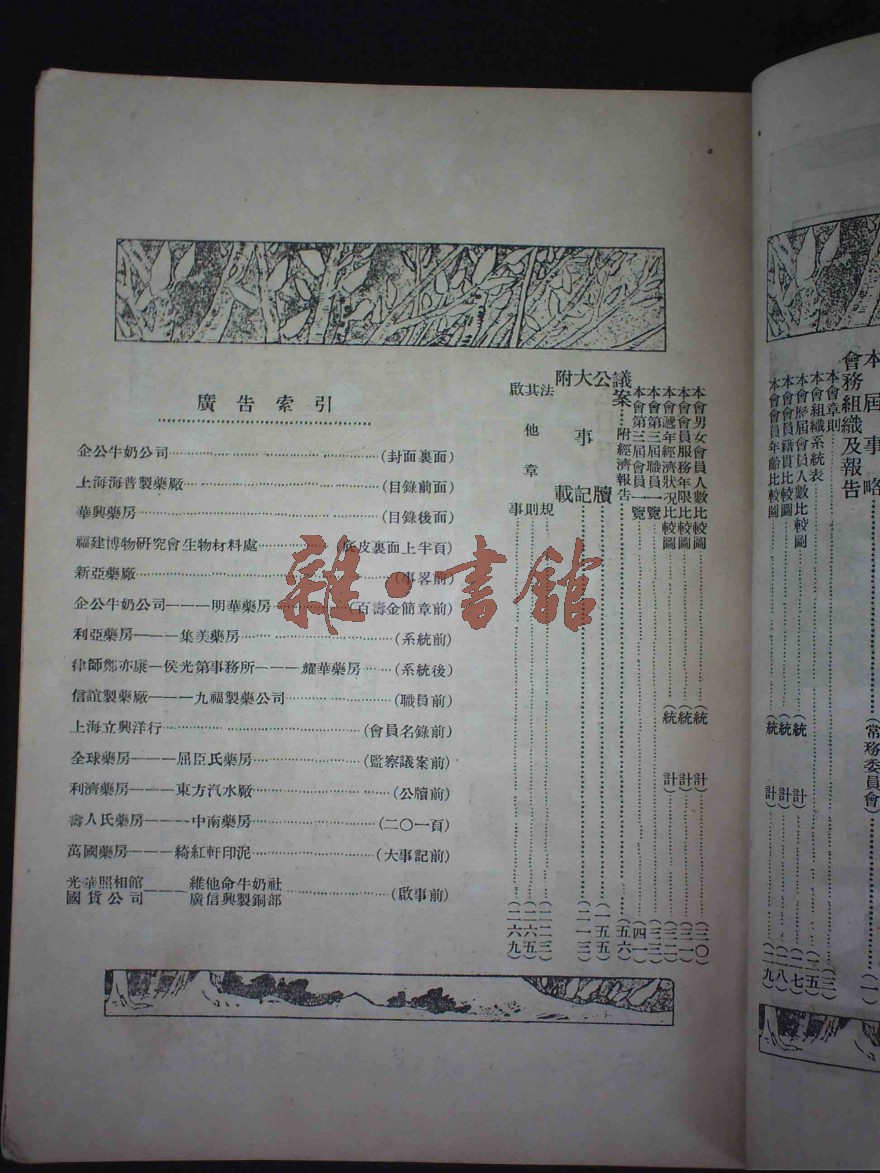 會務組織及報告
本屆事略……（常務委員會）……（一）
本會章則……（三）
本會組織系統表……（二五）
本會歷屆會員人數比較圖……（統計）……（二七）
本會會員籍貫比較圖……（統計）……（二八）
本會會員年齡比較圖……（統計）……（二九）
本會男女會員人數比較圖……（統計）……（三〇）
本會會員服務年限比較圖……（統計）……（三一）
本會遞年經濟狀況比較圖……（統計）……（三二）
本會第三屆職員一覽……（三三）
本會第三屆會員一覽……（四一）
議案……附經濟報告……（五六）
公牘……（一五五）
大事記……（二一三）
附載
法規……（二二三）
其他章則……（二六五）
啟事……（二六九）
廣告索引
企公牛奶公司……（封面裏面）
上海海普製藥廠……（目錄前面）
華興藥房……（目錄後面）
福建博物研究會生物材料處……（底皮裏面上半頁）
新亞藥廠……（事畧前）
企公牛奶公司———明華藥房……（百壽金簡章前）
利亞藥房———集美藥房……（系統前）
律師鄭亦康—侯光第事務所———耀華藥房……（系統後）
信誼製藥廠———九福製藥公司……（職員前）
上海立興洋行……（會員名錄前）
全球藥房———屈臣氏藥房……（監察議案前）
利濟藥房———東方汽水廠……（公牘前）
壽人氏藥房———中南藥房……（二〇一頁）
萬國藥房———綺紅軒印泥……（大事記前）
光華照相館 國貨公司———維他命牛奶社 廣信興製銅部……（啟事前）
雜·書館